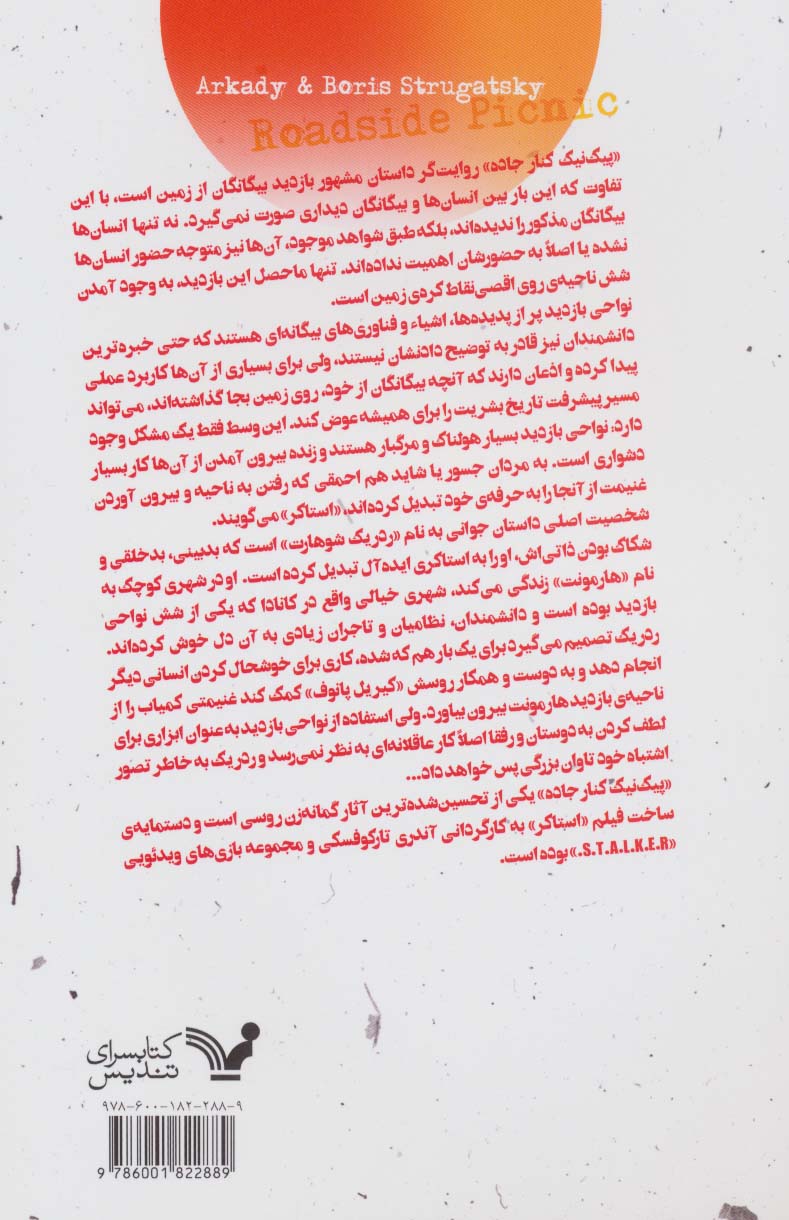 Arkady & Boris Strugatsky
Roadside Picnic
«پیک‌نیک کنار جاده» روایت‌گر داستان مشهور بازدید بیگانگان از زمین است، با این
تفاوت که این بار بین انسان‌ها و بیگانگان دیداری صورت نمی‌گیرد. نه تنها انسان‌ها
بیگانگان مذکور را ندیده‌اند، بلکه طبق شواهد موجود، آن‌ها نیز متوجه حضور انسان‌ها
نشده یا اصلاً به حضورشان اهمیت نداده‌اند. تنها ماحصل این بازدید، به وجود آمدن
شش ناحیه‌ی روی اقصی نقاط کره‌ی زمین است.
نواحی بازدید پر از پدیده‌ها، اشیاء و فناوری‌های بیگانه‌ای هستند که حتی خبره‌ترین
دانشمندان نیز قادر به توضیح دادنشان نیستند، ولی برای بسیاری از آن‌ها کاربرد عملی
پیدا کرده و اذعان دارند که آنچه بیگانگان از خود، روی زمین بجا گذاشته‌اند، می‌تواند
مسیر پیشرفت تاریخ بشریت را برای همیشه عوض کند. این وسط فقط یک مشکل وجود
دارد، نواحی بازدید بسیار هولناک و مرگبار هستند و زنده بیرون آمدن از آن‌ها کار بسیار
دشواری است. به مردان جسور یا شاید هم احمقی که رفتن به ناحیه و بیرون آوردن
غنیمت از آنجا را به حرفه‌ی خود تبدیل کرده‌اند، «استاکر» می‌گویند.
شخصیت اصلی داستان جوانی به نام «ردریک شوهارت» است که بدبینی، بدخلقی و
شکاک بودن ذاتی‌اش، او را به استاکری ایده‌آل تبدیل کرده است. او در شهری کوچک به
نام «هارمونت» زندگی می‌کند، شهری خیالی واقع در کانادا که یکی از شش نواحی
بازدید بوده است و دانشمندان، نظامیان و تاجران زیادی به آن دل خوش کرده‌اند.
ردریک تصمیم می‌گیرد برای یک بار هم که شده، کاری برای خوشحال کردن انسانی دیگر
انجام دهد و به دوست و همکار روسش «کیریل پانوف» کمک کند غنیمتی کمیاب را از
ناحیه‌ی بازدید هارمونت بیرون بیاورد. ولی استفاده از نواحی بازدید به عنوان ابزاری برای
لطف کردن به دوستان و رفقا اصلاً کار عاقلانه‌ای به نظر نمی‌رسد و ردریک به خاطر تصور
اشتباه خود تاوان بزرگی پس خواهد داد...
«پیک‌نیک کنار جاده» یکی از تحسین‌شده‌ترین آثار گمانه‌زن روسی است و دستمایه‌ی
ساخت فیلم «استاکر» به کارگردانی آندری تارکوفسکی و مجموعه بازی‌های ویدئویی
«S.T.A.L.K.E.R.» بوده است.
کتابسرای
تندیس
۹۷۸-۶۰۰-۱۸۲-۲۸۸-۹
9 786001 822889